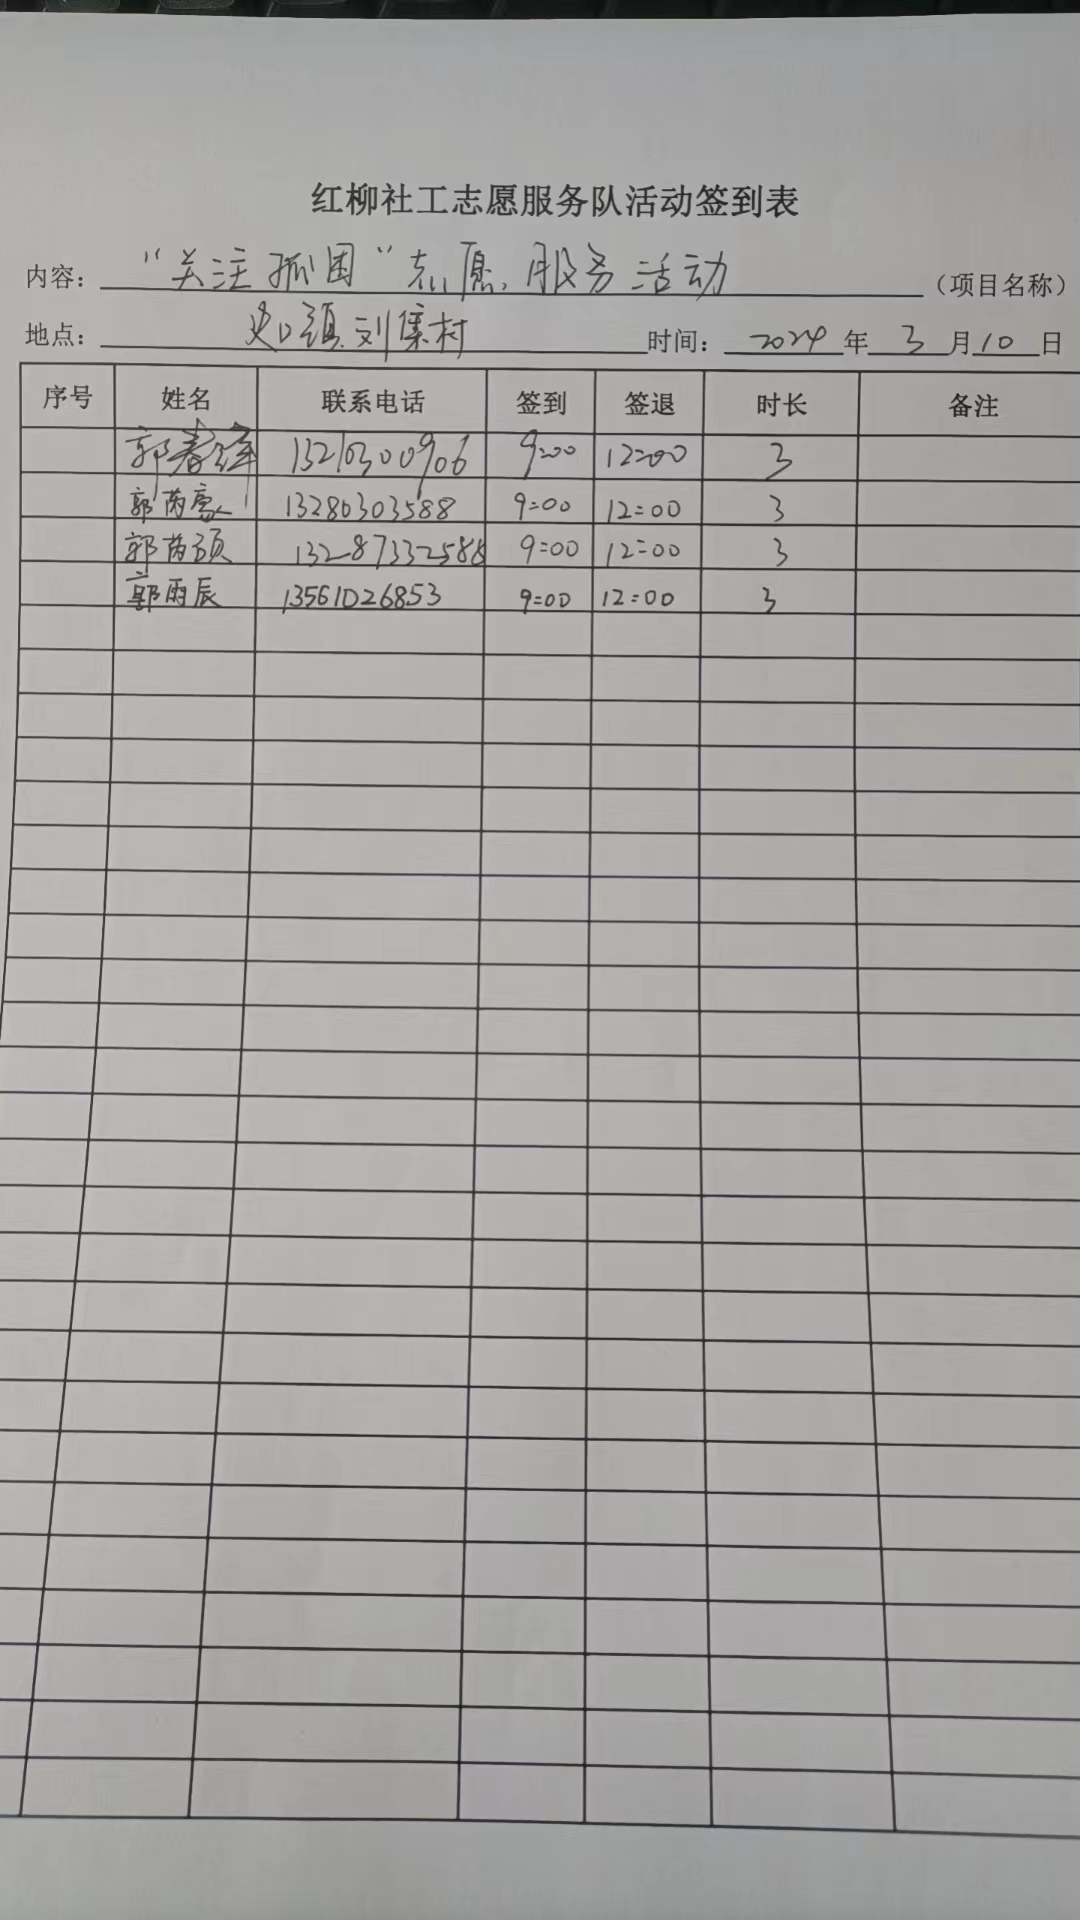 红柳社工志愿服务队活动签到表
内容： “关注孤困”志愿服务活动 （项目名称）
地点： 史口镇刘集村 时间： 2024 年 3 月 10 日
序号 姓名 联系电话 签到 签退 时长 备注
郭春 9:00 12:00 3
郭芮豪 13280303588 9:00 12:00 3
郭芮颀 13287332588 9:00 12:00 3
郭雨辰 13561026853 9:00 12:00 3